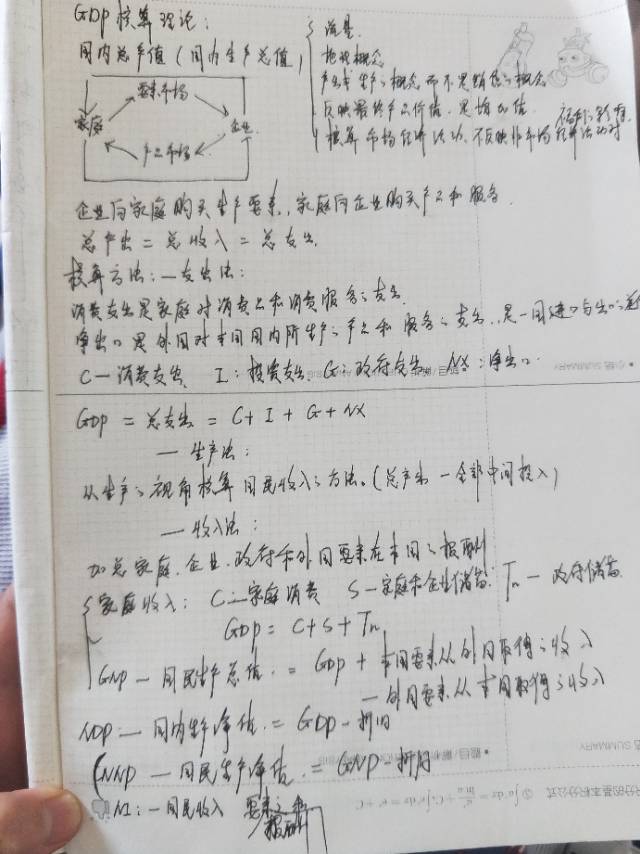 GDP核算理论:
国内总产值(国内生产总值)
流量.
地域概念
产出或生产之概念而不是销售之概念
反映最终产品价值.是增加值.
核算市场经济活动.不反映非市场经济活动
要素市场
家庭
企业
产品市场
企业向家庭购买生产要素,家庭向企业购买产品和服务.
总产出=总收入=总支出.
核算方法:—支出法:
消费支出是家庭对消费品和消费服务之支出.
净出口是外国对本国国内所生产之产品和服务之支出..是一国进口与出口之差
C—消费支出 I:投资支出 G:政府支出 NX:净出口.
SUMMARY
GDP=总支出=C+I+G+NX
—生产法:
从生产之视角核算国民收入之方法。(总产出-全部中间投入)
—收入法:
加总家庭.企业.政府和外国要素在本国之报酬
家庭收入: C—家庭消费 S—家庭和企业储蓄. Tn—政府储蓄
GDP=C+S+Tn
GNP—国民生产总值.=GDP+本国要素从外国取得之收入
—外国要素从本国取得之收入
NDP—国内生产净值.=GDP-折旧
NNP—国民生产净值.=GNP-折旧
SUMMARY
NI:—国民收入 要素之和
报酬